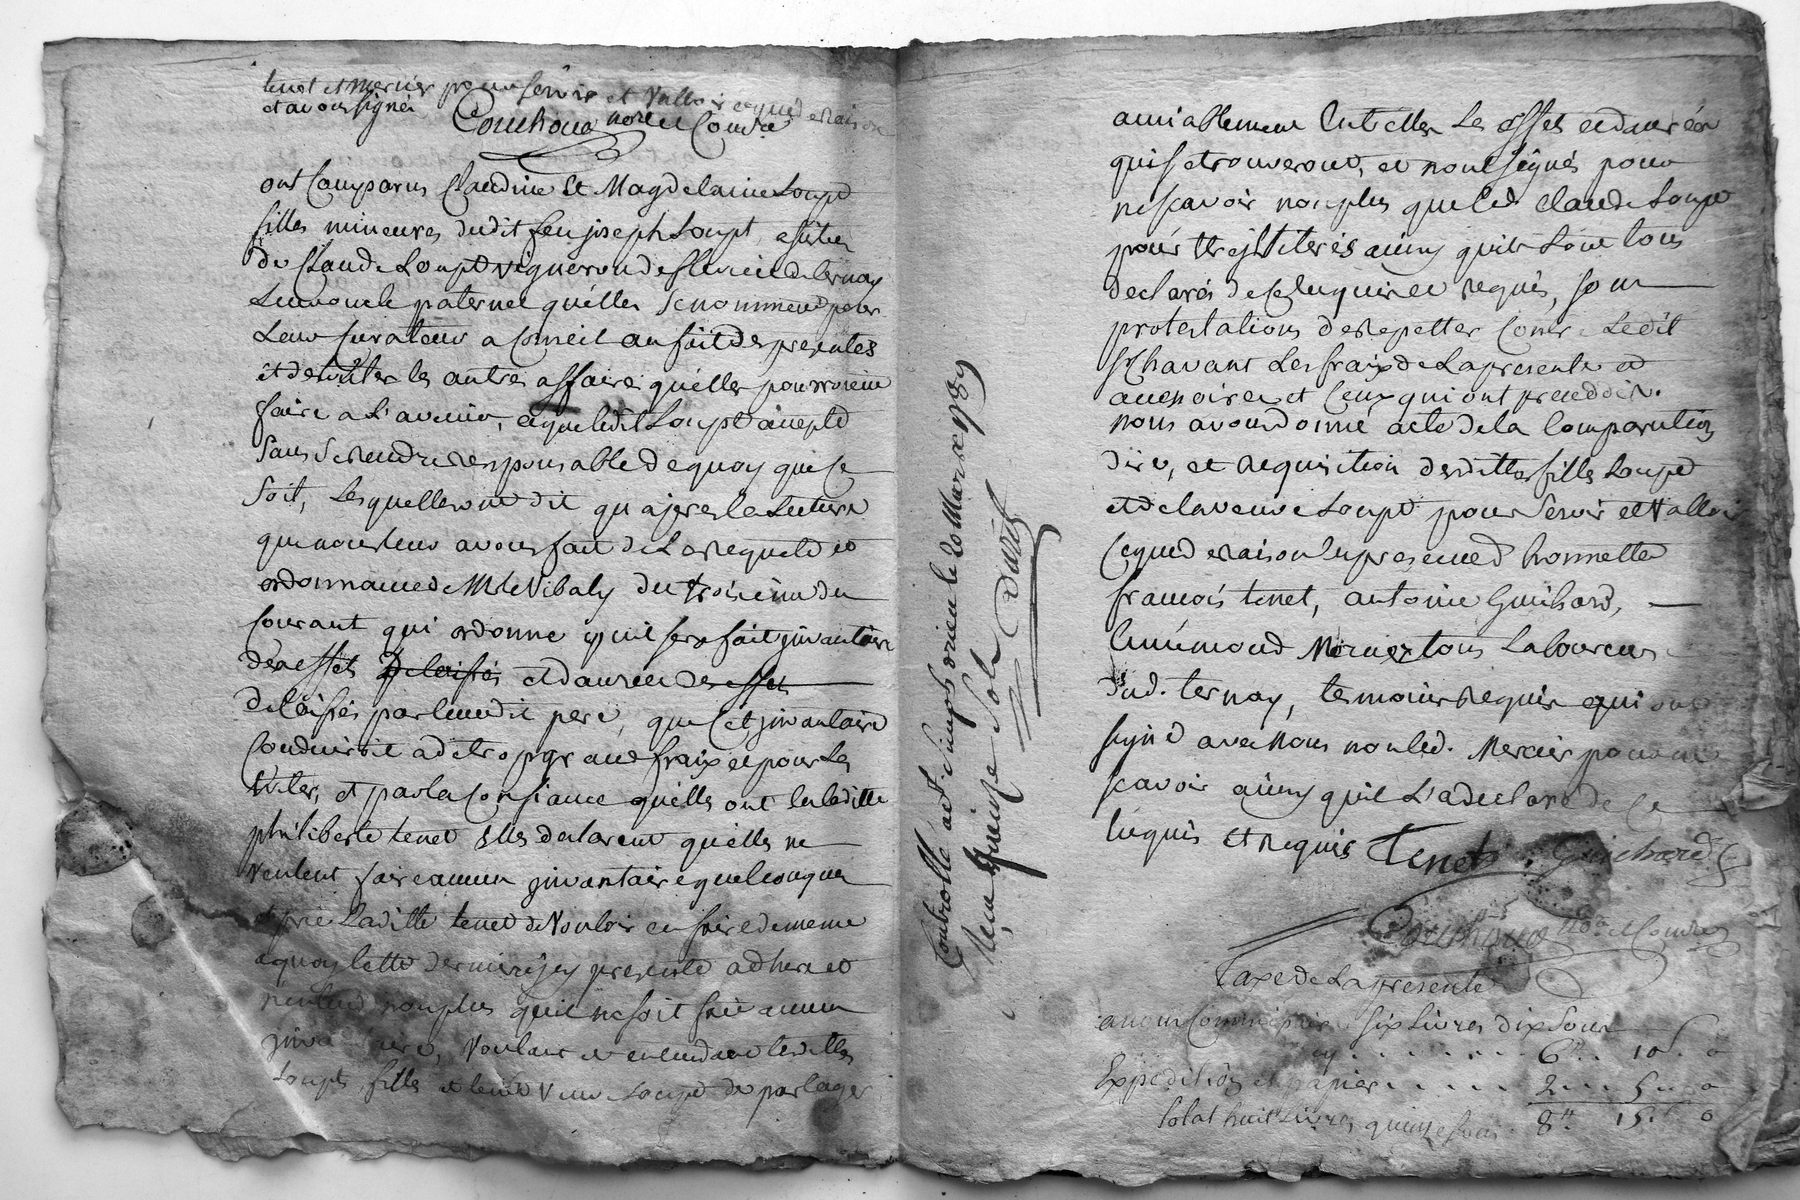 tenet et Mercier pour servir et Valloir ce qued eraison
et avons signé Couchoud nore et Comre
ont Comparus Claudine et Magdelaine Loupt
filles mineures dudit feu joseph Loupt
de Claude Loupt vigneron de ternay
Leur oncle paternel quélles se nomment pour
Leur Curateur a Conseil au fait des presentes
et de toutes les autres affaires quélles pourroient
faire a L'avenir, ce que ledit Loupt accepte
sans se rendre responsable de quoy que ce
soit, Lesquelles ont dit qu apres la Lecture
que nous leur avons fait de La requete et
ordonnance de Mr le Vibaly du troisième du
Courant qui ordonne quil sera fait jnvantaire
des effets delaissés et danrées des effets
delaissés par leurdit pere, que Cet jnvantaire
Conduiroit a de trop grand fraix et pour Les
eviter, et par la Confiance quélles ont en laditte
philiberte tenet Elles declarent quélles ne
veulent faire aucun jnvantaire quelconque
et prie Laditte tenet de Vouloir en faire de meme
a quoy Cette derniere jcy presente adhere et
n'entend non plus quil ne soit fait aucun
jnvantaire, Voulant et entendant lesdittes
Loupt filles et laditte Veuve Loupt de partager
Controllé a St Simphorien le 20 Mars 1789
Reçu quinze sols Durif
amiablement Entrelles Les effets et danrées
qui se trouveront, et n'ont signés pour
ne scavoir non plus que led Claude Loupt
pour être jlliterés ainsy quils L'ont tous
declarés de Ce enquis et requis, sous
protestations de repetter Contre Ledit
Chavant Les fraix de La presente et
accesoires et Ceux qui ont precedés.
nous avons donné acte de la Comparution
dire, et requisition desdittes filles Loupt
et de la veuve Loupt pour servir et Valloir
Ceque de raison En presence d'honnettes
francois tenet, antoine Guichard,
Ennémond Mercier tous Laboureurs
dud. ternay, temoins requis qui ont
signé avec Nous non led. Mercier pour ne
scavoir ainsy quil L'a declaré de ce
enquis et requis Tenet. Guichard
Couchoud nore et Comre
Taxe de La presente
a nous Commissaire six Livres dix sous
cy . . . . . . . 6tt . . 10s. 0
Expedition et papier . . . . . 2 . . . 5 . . 0
total huit Livres quinze sous 8tt 15s 0